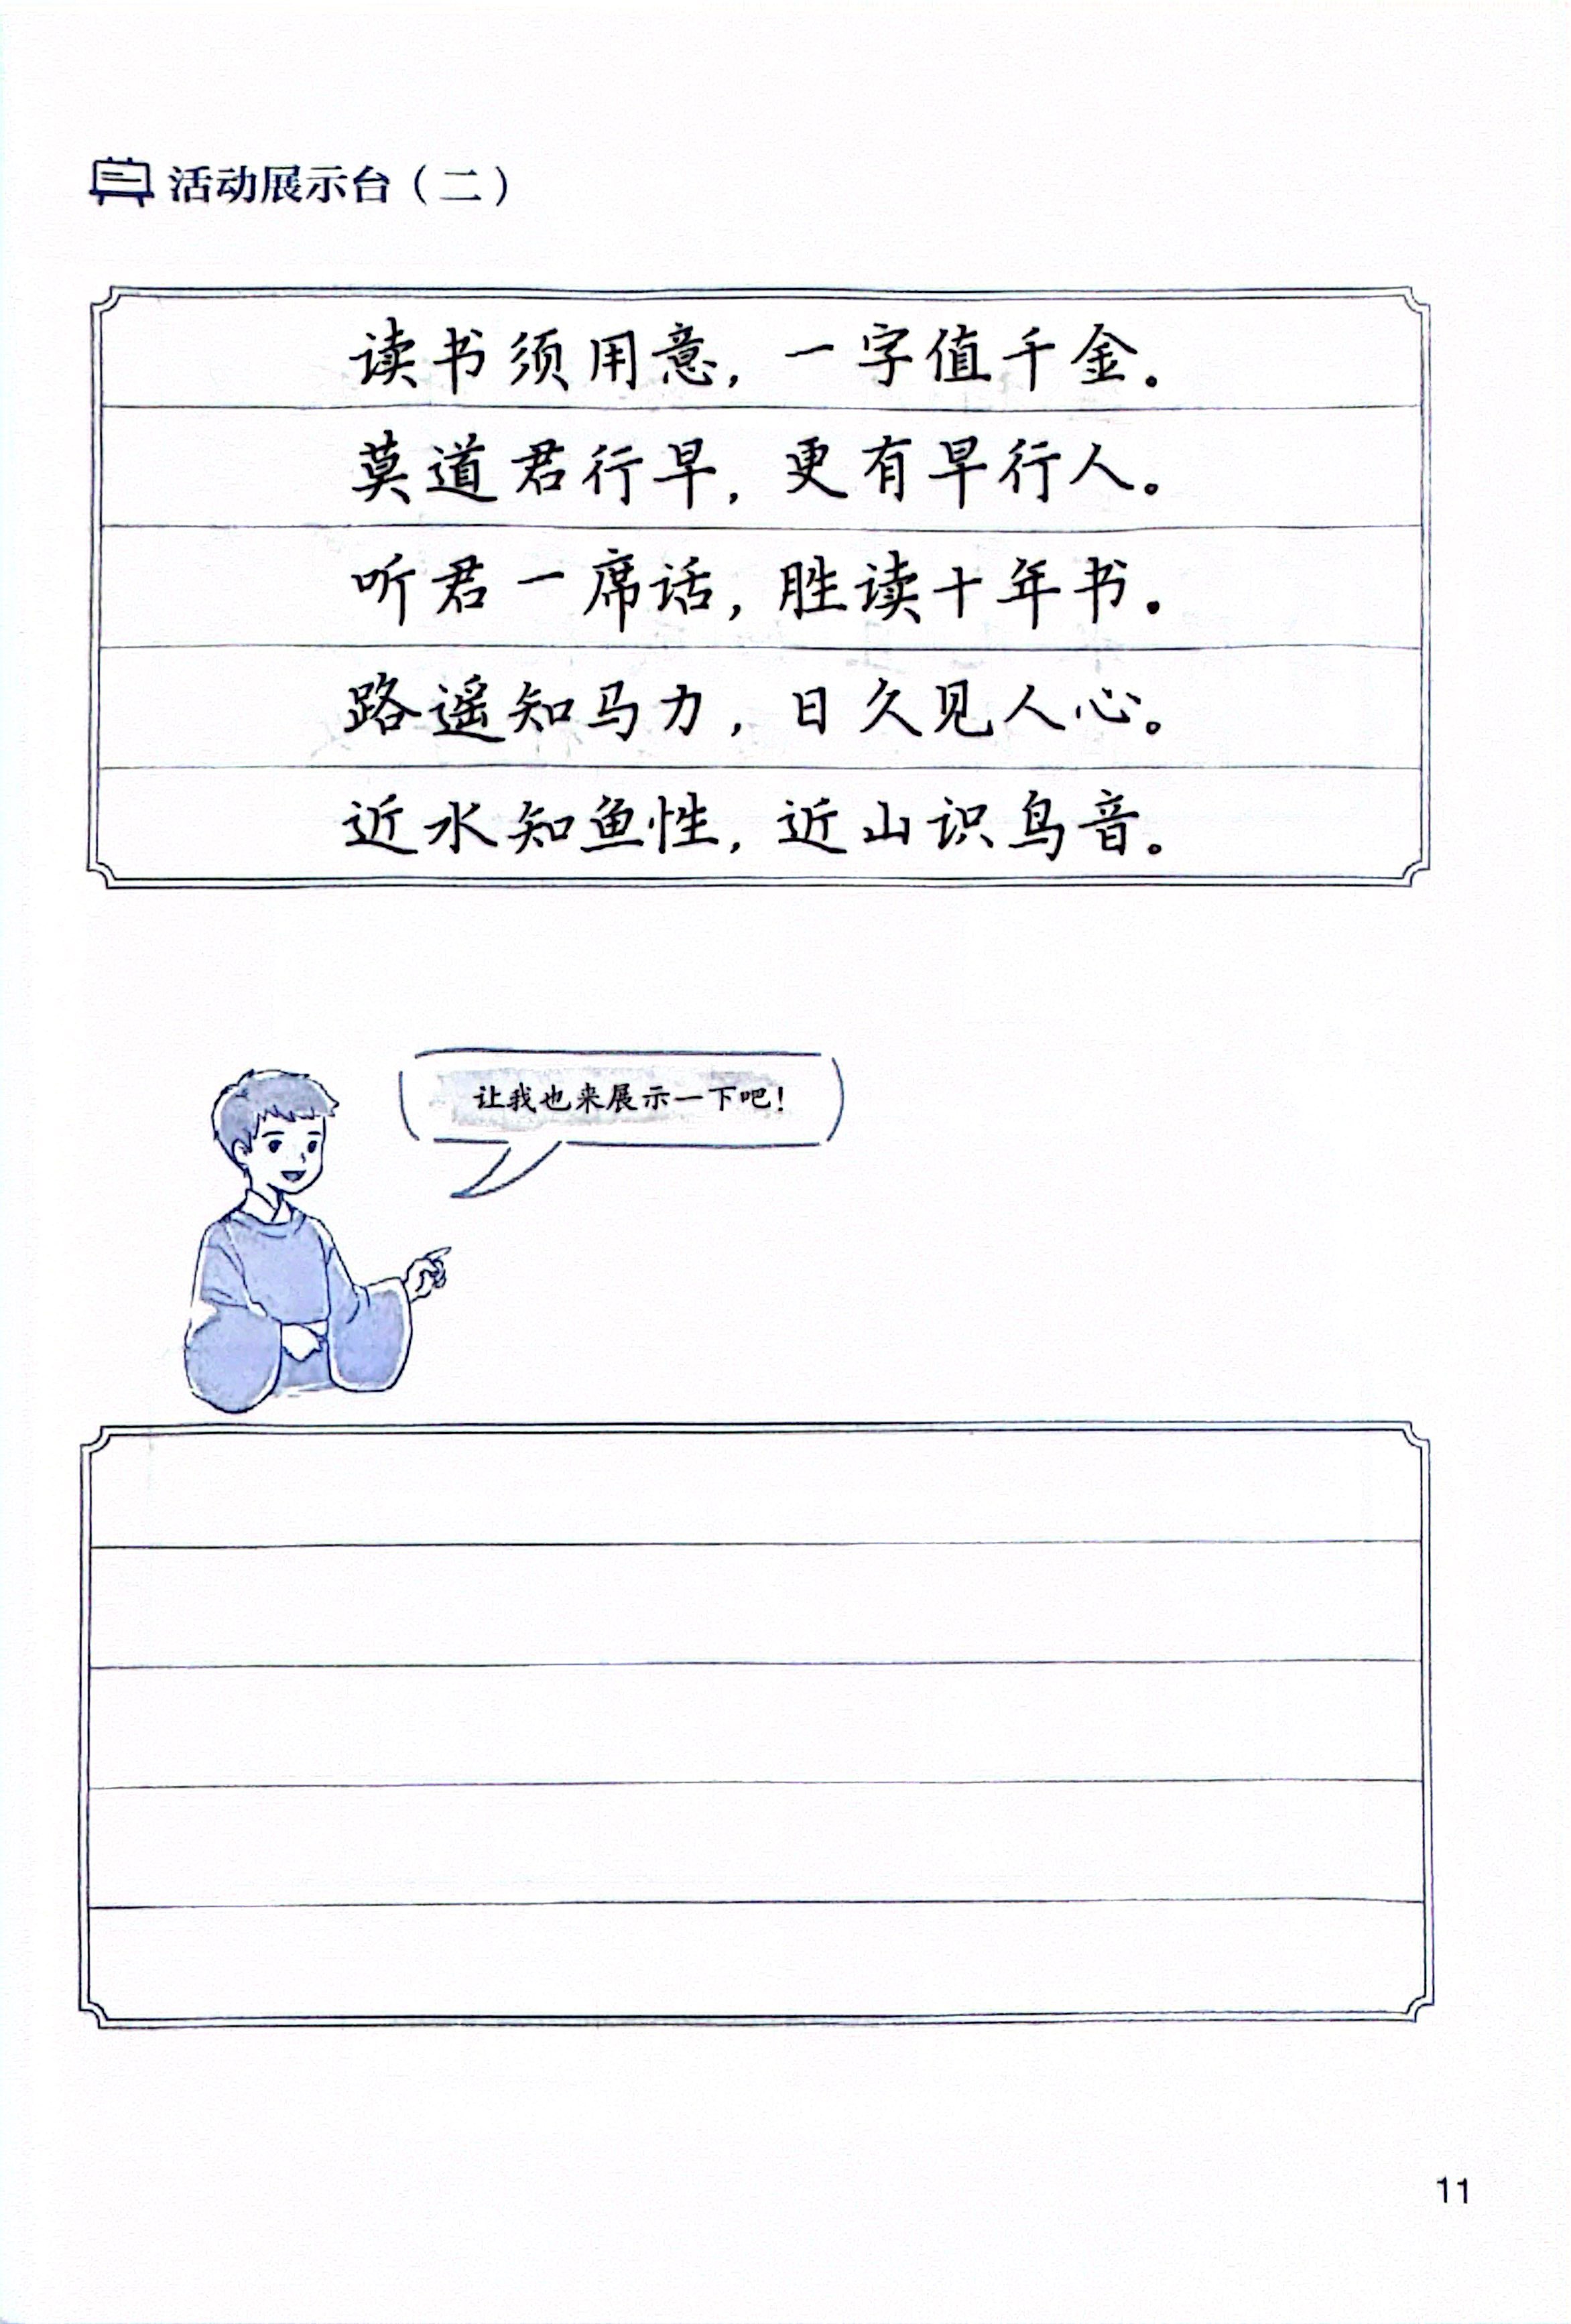 活动展示台（二）
读书须用意，一字值千金。
莫道君行早，更有早行人。
听君一席话，胜读十年书。
路遥知马力，日久见人心。
近水知鱼性，近山识鸟音。
让我也来展示一下吧！
11